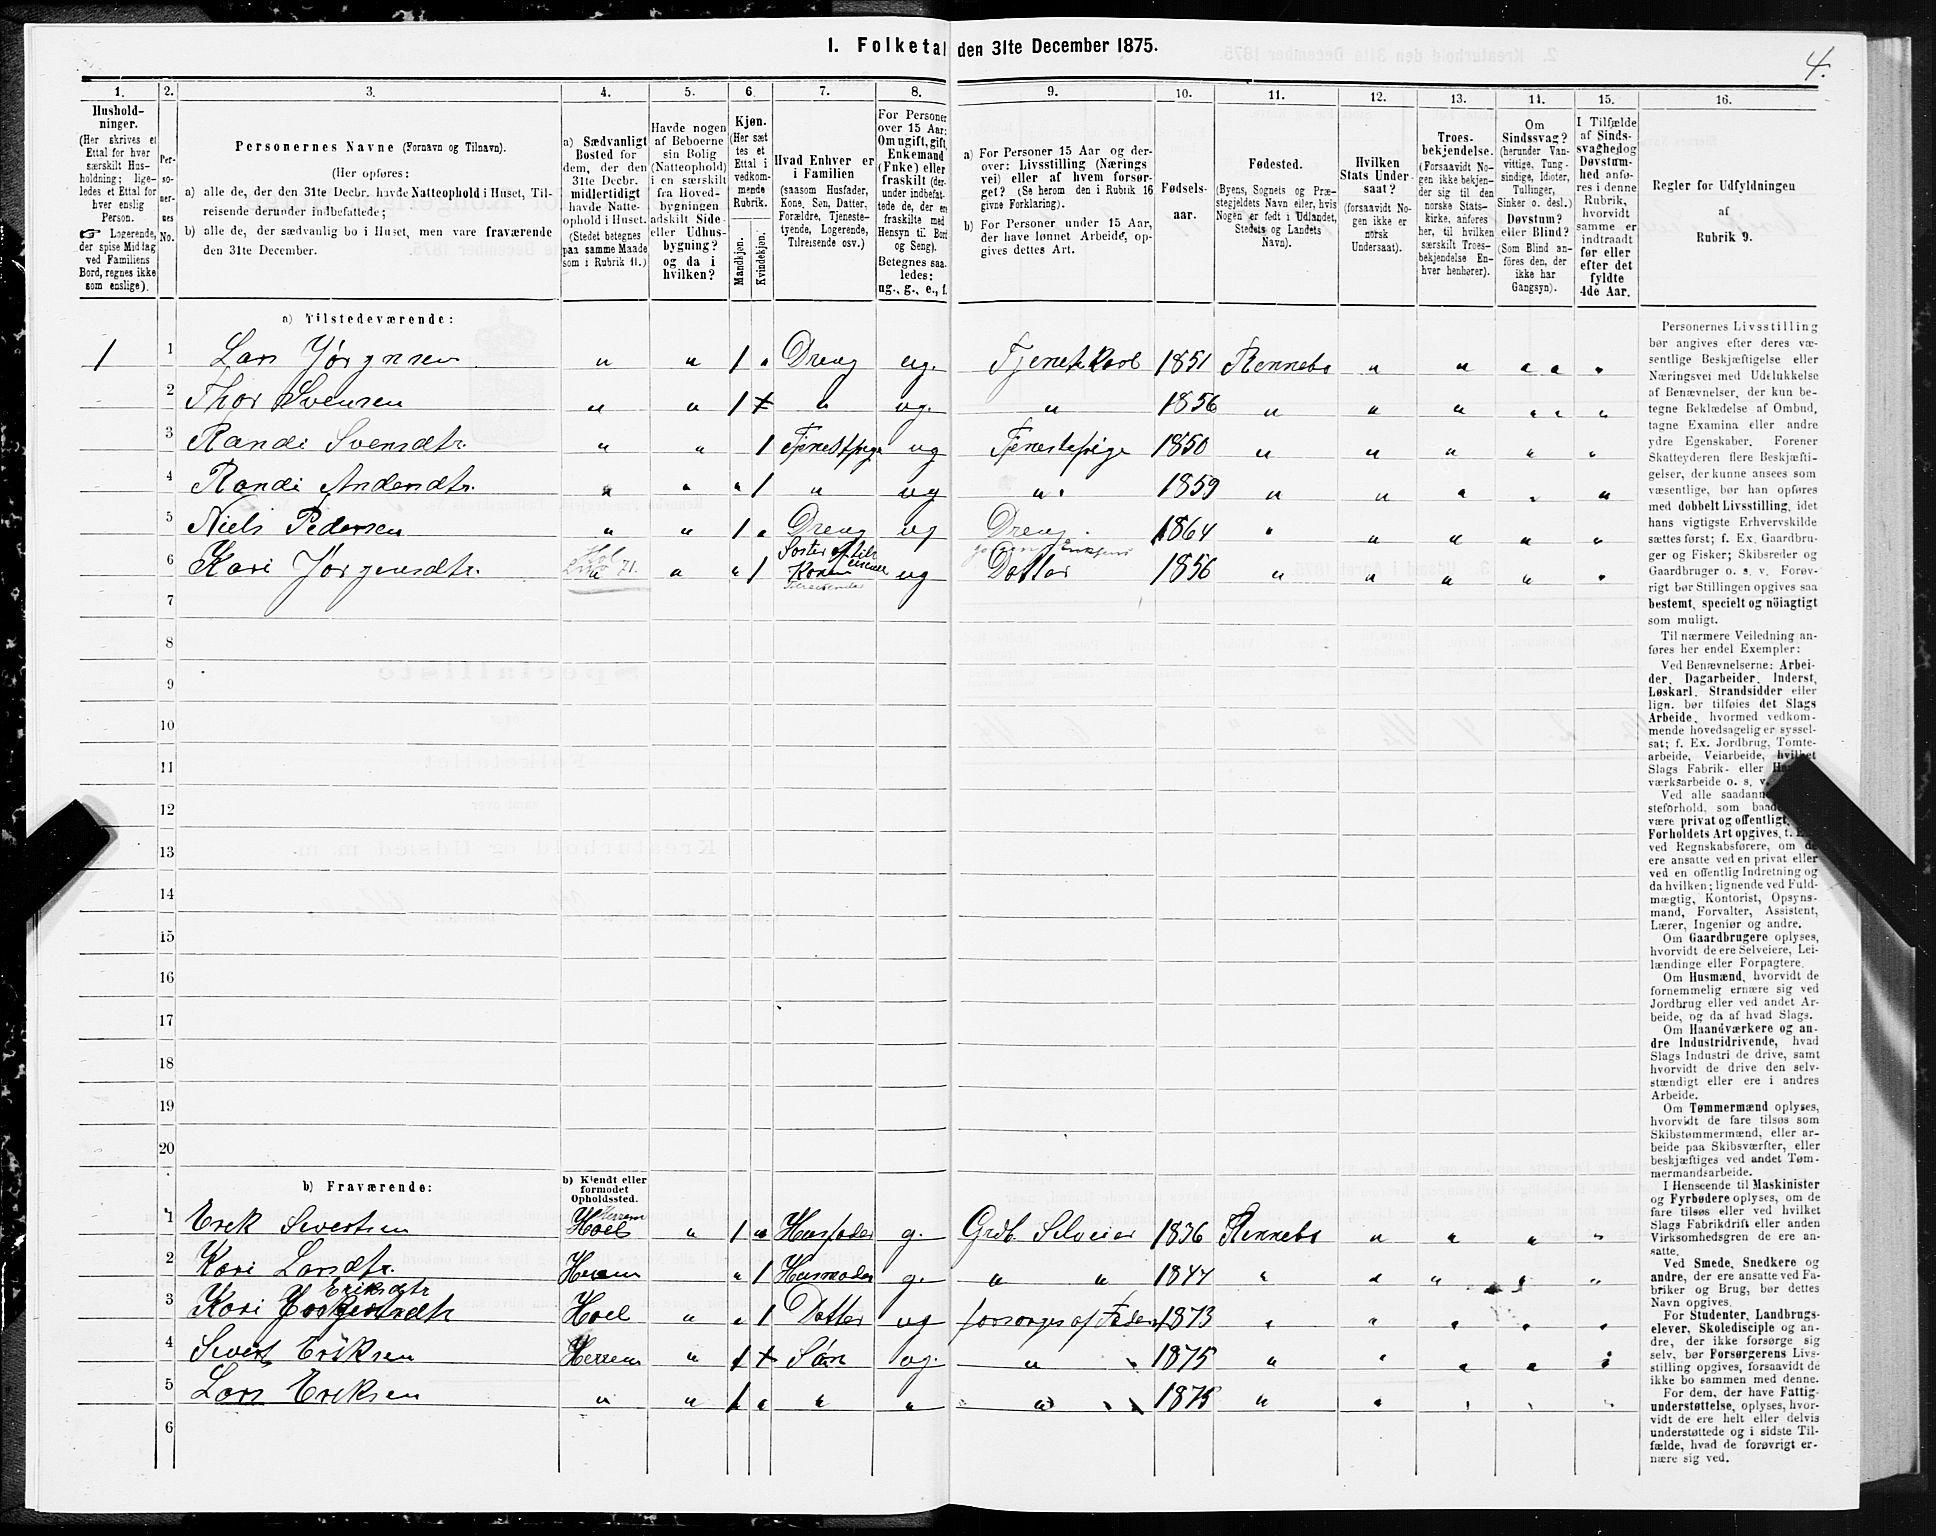 1. Folketal den 31te December 1875.
4.
1. 2. 3. 4. 5. 6. 7. 8. 9. 10. 11. 12. 13. 14. 15. 16.
Hushold-
ninger.
(Her skrives et
Ettal for hver
særskilt Hus-
holdning; lige-
ledes et Ettal for
hver enslig
Person.
☞ Logerende,
der spise Middag
ved Familiens
Bord, regnes ikke
som enslige).
Per-
so-
ner-
nes
No.
Personernes Navne (Fornavn og Tilnavn).
(Her opføres:
a) alle de, der den 31te Decbr. havde Natteophold i Huset, Til-
reisende derunder indbefattede;
b) alle de, der sædvanlig bo i Huset, men vare fraværende
den 31te December.
a) Sædvanligt
Bosted for
dem, der den
31te Decbr.
midlertidigt
havde Natte-
ophold i Huset.
(Stedet betegnes
paa samme Maade
som i Rubrik 11.)
Havde nogen
af Beboerne
sin Bolig
(Natteophold)
i en særskilt
fra Hoved-
bygningen
adskilt Side-
eller Udhus-
bygning?
og da i
hvilken?
Kjøn.
(Her sæt
tes et
Ettal i
vedkom-
mende
Rubrik.
Mandkjøn.
Kvindekjøn.
Hvad Enhver er
i Familien
(saasom Husfader,
Kone, Søn, Datter,
Forældre, Tjeneste-
tyende, Logerende,
Tilreisende osv.)
For Personer
over 15 Aar:
Om ugift, gift,
Enkemand
(Enke) eller
fraskilt (der-
under indbefat-
tede de, der ere
fraskilte med
Hensyn til Bord
og Seng).
Betegnes saa-
ledes:
ug., g., e., f.
a) For Personer 15 Aar og der-
over: Livsstilling (Nærings
vei) eller af hvem forsør-
get? (Se herom den i Rubrik 16
givne Forklaring).
b) For Personer under 15 Aar,
der have lønnet Arbeide, op-
gives dettes Art.
Fødsels-
aar.
Fødested.
(Byens, Sognets og Præ-
stegjeldets Navn eller, hvis
Nogen er født i Udlandet,
Stedets og Landets
Navn).
Hvilken
Stats Under-
saat?
(forsaavidt No-
gen ikke er
norsk
Undersaat).
Troes-
bekjendelse.
(Forsaavidt No-
gen ikke bekjen-
der sig til den
norske Stats-
kirke, anføres
her, til hvilken
særskilt Troes-
bekjendelse En-
hver henhører).
Om
Sindssvag?
(herunder Van-
vittige, Tung-
sindige, Idioter,
Tullinger,
Sinker o. desl.)
Døvstum?
eller Blind?
(Som Blind an-
føres den, der
ikke har
Gangsyn).
I Tilfælde
af Sinds-
svaghed og
Døvstum-
hed anfø-
res i denne
Rubrik,
hvorvidt
samme er
indtraadt
før eller
efter det
fyldte
4de Aar.
Regler for Udfyldningen
af
Rubrik 9.
a) Tilstedeværende:
1 1 Lars Jørgnsen " " 1 " Dreng ug. Tjenestekarl 1851 Rennebo " " " " "
2 Thor Svensen " " 1 " ug. " 1856 " " " " " "
3 Randi Svensdtr. " " 1 Tjenestpige ug Tjenestepige 1850 " " " " "
4 Randi Andersdtr. " " " 1 " ug " 1859 " " " " "
5 Niels Pedersen " " 1 " Dreng ug Dreng 1864 " " " " "
6 Kari Jørgensdtr. " " 1 Søster af Konen Tilreisende ug Datter 1856 " " " " "
7
8
9
10
11
12
13
14
15
16
17
18
19
20
b) Fraværende:
b) Kjendt eller
formodet
Opholdssted.
1 Erik Sivertsen Hoel Herrem " 1 " Husfader g. Grdb. Selveier 1836 Rennebo " " " "
2 Kari Larsdtr. Herrem " 1 Husmoder g. " " 1847 " " " " "
3 Kari Eriksdtr Hoel " " 1 Datter ug forsørges af Fader 1873 " " " " "
4 Sivert Eriksen Herrem " 1 Søn ug. " 1875 " " " " "
5 Lars Eriksen " " 1 " " " " 1875 " " " " "
6
Personernes Livsstilling
bør angives efter deres væ-
sentlige Beskjæftigelse eller
Næringsvei med Udelukkelse
af Benævnelser, der kun be-
tegne Beklædelse af Ombud,
tagne Examina eller andre
ydre Egenskaber. Forener
Skatteyderen flere Beskjæfti-
gelser, der kunne ansees som
væsentlige, bør han opføres
med dobbelt Livsstilling, idet
hans vigtigste Erhvervskilde
sættes først; f. Ex. Gaardbru-
ger og Fisker; Skibsreder og
Gaardbruger o. s. v. Forøv-
rigt bør Stillingen opgives saa
bestemt, specielt og nöiagtigt
som muligt.
Til nærmere Veiledning an-
føres her endel Exempler:
Ved Benævnelserne: Arbei-
der, Dagarbeider, Inderst,
Løskarl, Strandsidder eller
lign. bør tilføies det Slags
Arbeide, hvormed vedkom-
mende hovedsagelig er syssel-
sat; f. Ex. Jordbrug, Tomte-
arbeide, Veiarbeide, hvilket
Slags Fabrik- eller
værksarbeide o. s. v.
Ved alle saadanne
steforhold, som baade
være privat og offentligt,
Forholdets Art opgives,
ved Regnskabsførere, om de
ere ansatte ved en privat eller
ved en offentlig Indretning og
da hvilken; lignende ved Fuld-
mægtig, Kontorist, Opsyns-
mand, Forvalter, Assistent,
Lærer, Ingeniør og andre.
Om Gaardbrugere oplyses,
hvorvidt de ere Selveiere, Lei-
lændinge eller Forpagtere.
Om Husmænd, hvorvidt de
fornemmelig ernære sig ved
Jordbrug eller ved andet Ar-
beide, og da af hvad Slags.
Om Haandværkere og an-
dre Industridrivende, hvad
Slags Industri de drive, samt
hvorvidt de drive den selv-
stændigt eller ere i andres
Arbeide.
Om Tømmermænd oplyses,
hvorvidt de fare tilsøs som
Skibstømmermænd, eller ar-
beide paa Skibsværfter, eller
beskjæftiges ved andet Tøm-
mermandsarbeide.
I Henseende til Maskinister
og Fyrbødere oplyses, om de
fare tilsøs eller ved hvilket
Slags Fabrikdrift eller anden
Virksomhedsgren de ere an-
satte.
Ved Smede, Snedkere og
andre, der ere ansatte ved Fa-
briker og Brug, bør dettes
Navn opgives.
For Studenter, Landbrugs-
elever, Skoledisciple og an-
dre, der ikke forsørge sig
selv, bør Forsørgerens Livs-
stilling opgives, forsaavidt de
ikke bo sammen med denne.
For dem, der have Fattig-
understøttelse, oplyses, hvor-
vidt de ere helt eller delvis
understøttede og i sidste Til-
fælde, hvad de forøvrigt er-
nære sig ved.